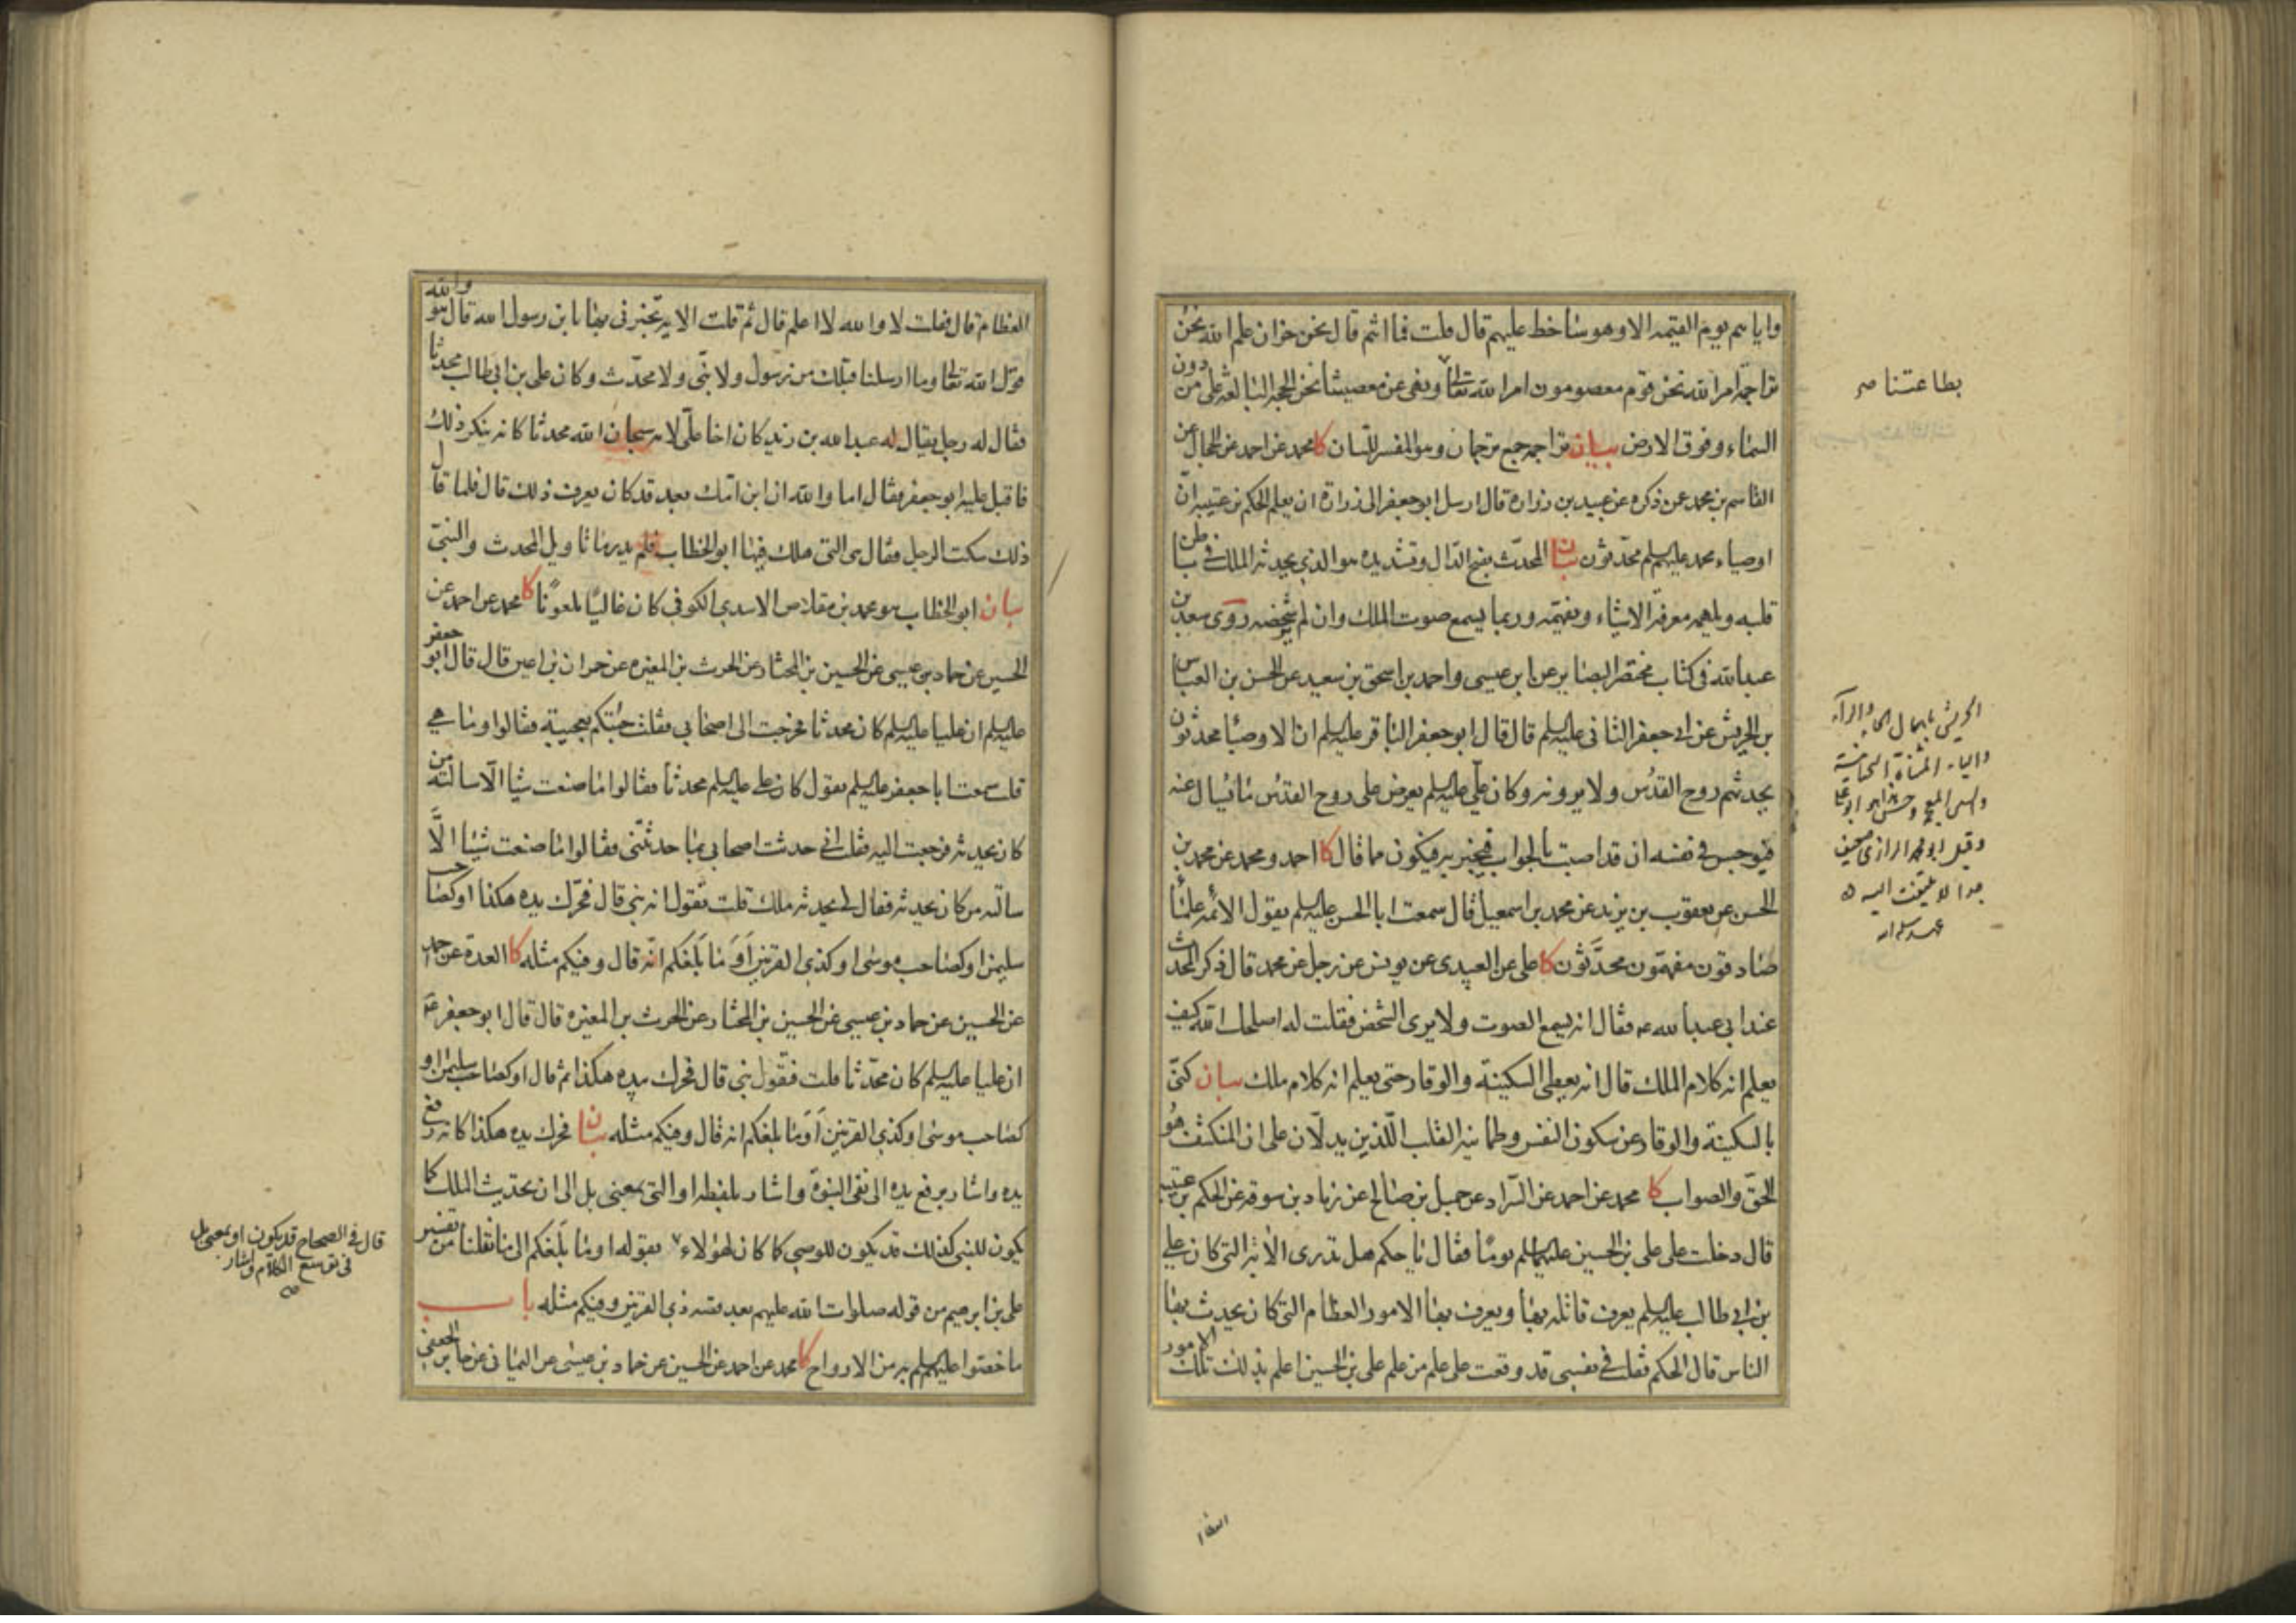 واياهم يوم القيمه الا وهو ساخط عليهم قال قلت فما انتم قال نحن خزان علم الله نحن
تراجمة امر الله نحن قوم معصومون امر الله تعالى ونهى عن معصيتنا نحن الحجة البالغة على من دون
السماء وفوق الارض بيان تراجمه جمع ترجمان وهو المفسر للسان كا محمد عن احمد عن الحجال عن
القاسم بن محمد عمن ذكره عن عبيد بن زراره قال ارسل ابو جعفر الى زرارة ان يعلم الحكم بن عتيبه ان
اوصياء محمد عليهم محدثون بيان المحدث بفتح الدال وتشديده هو الذي يحدثه الملك في باطن
قلبه ويلهمه معرفة الاشياء ويفهمه وربما يسمع صوت الملك وان لم ير شخصه روى سعد بن
عبد الله في كتاب مختصر البصاير عن ابن عيسى واحمد بن اسحق بن سعيد عن الحسن بن العباس
بن الحريش عن ابي جعفر الثاني عليه السلم قال قال ابو جعفر الباقر عليه السلم ان الاوصيا محدثون
يحدثهم روح القدس ولا يرونه وكان علي عليه السلم يعرض على روح القدس ما يسال عنه
فيوجس في نفسه ان قد اصبت بالجواب فيخبر به فيكون مما قال كا احمد ومحمد عن محمد بن
الحسن عن يعقوب بن يزيد عن محمد بن اسمعيل قال سمعت ابا الحسن عليه السلم يقول الائمه علماء
صادقون مفهمون محدثون كا علي عن العبيدى عن يونس عن رجل عن محمد قال ذكر المحدث
عند ابي عبد الله عه فقال انه يسمع الصوت ولا يرى الشخص فقلت له اصلحك الله كيف
يعلم انه كلام الملك قال انه يعطى السكينة والوقار حتى يعلم انه كلام ملك بيان كنى
بالسكينة والوقار عن سكون النفس وطمانينه القلب اللذين يدلان على ان المنكشف هو
الحق والصواب كا محمد عن احمد عن السراد عن جميل بن صالح عن زياد بن سوقه عن الحكم بن عتيبه
قال دخلت على علي بن الحسين عليهما السلم يوما فقال يا حكم هل تدرى الايه التي كان علي
بن ابي طالب عليه السلم يعرف قاتله بها ويعرف بها الامور العظام التي كان يحدث بها
الناس قال الحكم فقلت في نفسي قد وقعت على علم من علم علي بن الحسين اعلم بذلك تلك الامور
بطاعتنا صح
الحريش باهمال الحاء والراء
والياء المثناة التحتانية
والشين المعجمة
وقيل ابو محمد الرازي ضعيف
جدا لا يلتفت اليه
العظام
العظام قال فقلت لا والله لا اعلم قال ثم قلت الايه تخبرني بها يا بن رسول الله قال هو والله
قول الله تعالى وما ارسلنا قبلك من رسول ولا نبي ولا محدث وكان علي بن ابي طالب محدثا
فقال له رجل يقال له عبد الله بن زيد كان اخا علي لامه سبحان الله محدثا كانه ينكر ذلك
فاقبل عليه ابو جعفر فقال اما والله ان ابن امك بعد قد كان يعرف ذلك قال فلما قال
ذلك سكت الرجل فقال هي التي هلك فيها ابو الخطاب فلم يدر ما تاويل المحدث والنبي
بيان ابو الخطاب هو محمد بن مقلاص الاسدي الكوفي كان غاليا ملعونا كا محمد عن احمد عن
الحسين عن حماد بن عيسى عن الحسين بن المختار عن الحرث بن المغيره عن حمران بن اعين قال قال ابو جعفر
عليه السلم ان عليا عليه السلم كان محدثا فخرجت الى اصحابي فقلت جئتكم بعجيبة فقالوا وما هي
قلت سمعت ابا جعفر عليه السلم يقول كان علي عليه السلم محدثا فقالوا ما صنعت شيا الا سالته من
كان يحدثه فرجعت اليه فقلت اني حدثت اصحابي بما حدثتني فقالوا ما صنعت شيئا الا
سالته من كان يحدثه فقال لي يحدثه ملك قلت تقول انه نبي قال فحرك يده هكذا او كصاحب
سليمن او كصاحب موسى او كذي القرنين أَوَما بلغكم انه قال وفيكم مثله كا العدة عن احمد
عن الحسين عن حماد بن عيسى عن الحسين بن المختار عن الحرث بن المغيره قال قال ابو جعفر عه
ان عليا عليه السلم كان محدثا قلت فتقول نبي قال فحرك بيده هكذا ثم قال او كصاحب سليمن او
كصاحب موسى او كذي القرنين أَوَما بلغكم انه قال وفيكم مثله بيان فحرك يده هكذا كانه رفع
يده واشار برفع يده الى نفى النبوة واشار بلفظه او التي بمعنى بل الى ان تحديث الملك كما
يكون للنبي كذلك قد يكون للوصي كما كان لهؤلاء بقوله اوما بلغكم الى ما نقلنا من تفسير
علي بن ابرهيم من قوله صلوات الله عليهم بعد قصه ذي القرنين وفيكم مثله باب
ما خصوا عليهم به من الارواح كا محمد عن احمد عن الحسين عن حماد بن عيسى عن اليماني عن جابر الجعفي
قال في الصحاح قد يكون او بمعنى بل
في توسع الكلام